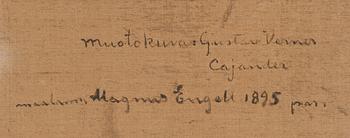 Muotokuva: Gustav Verner
Cajander
maalannut Magnus Enckell 1895